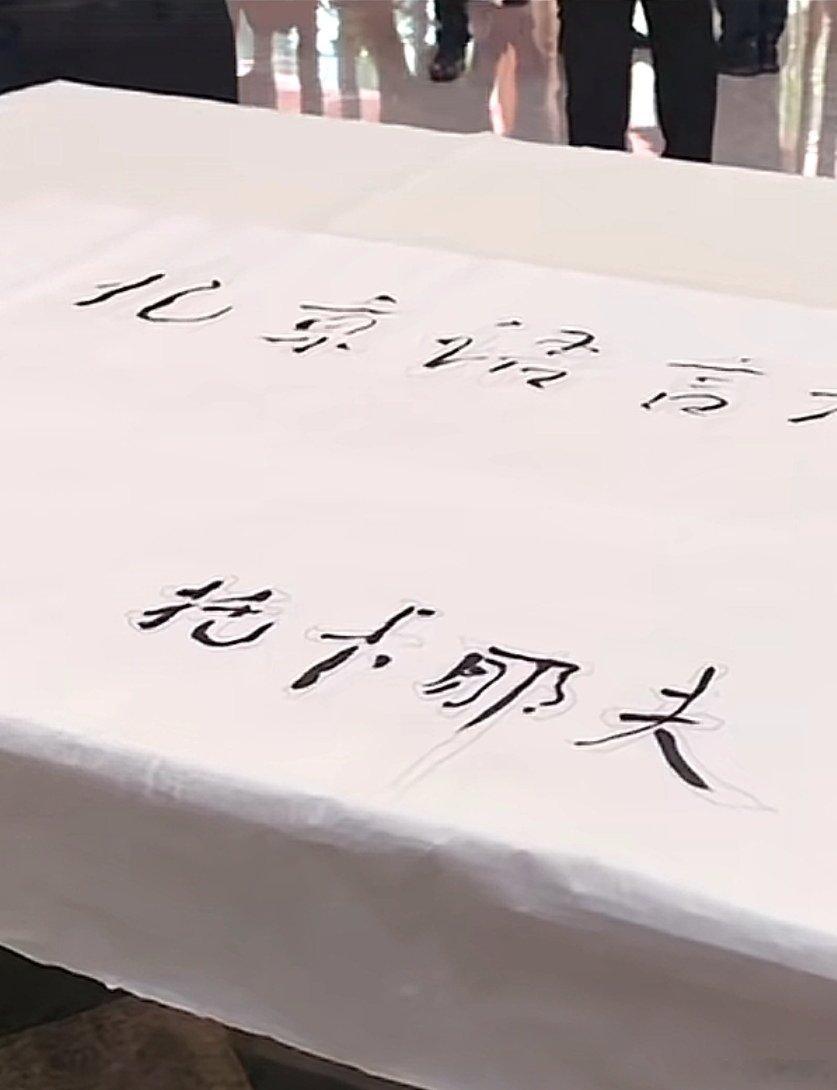 北京语言
托卡耶夫